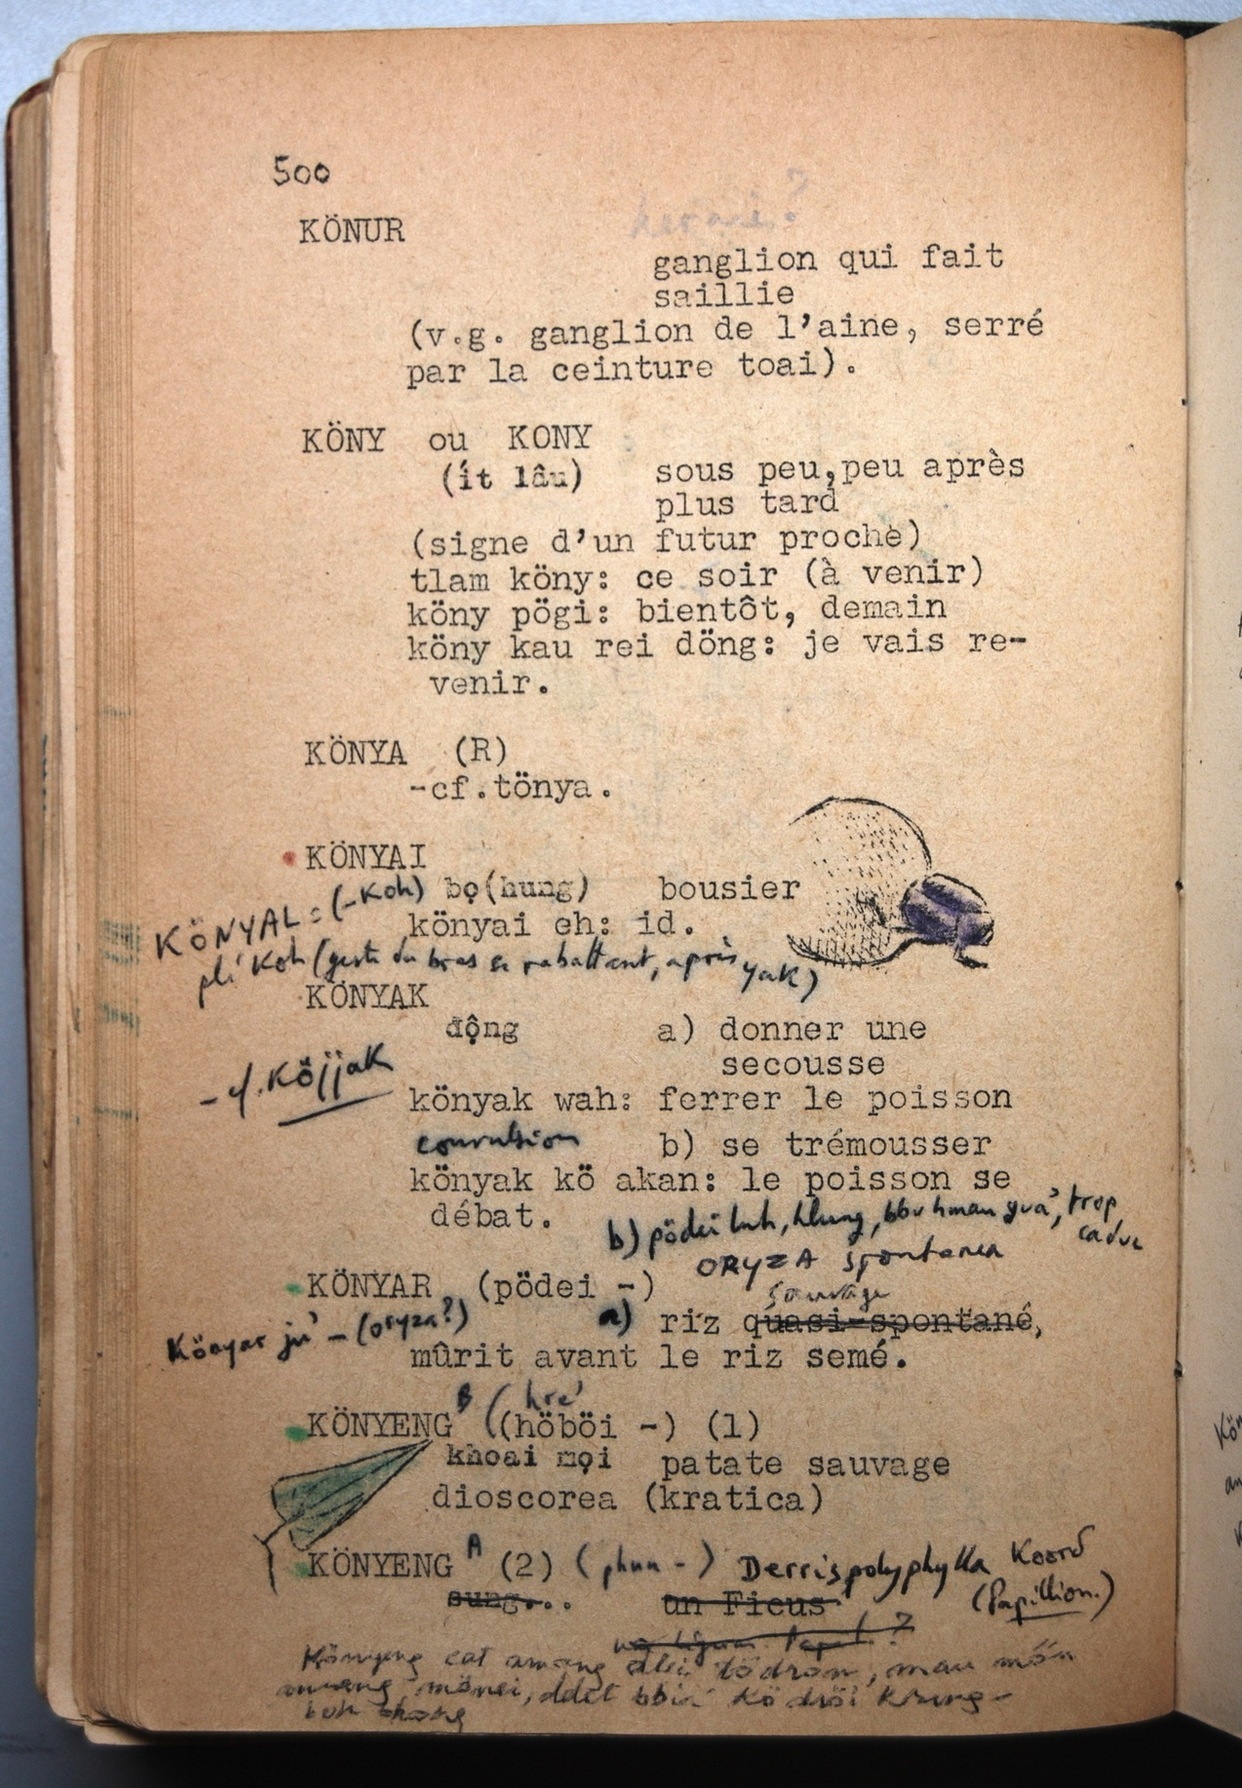 500
KÖNUR
ganglion qui fait
saillie
(v.g. ganglion de l'aine, serré
par la ceinture toai).
KÖNY ou KONY
(ít lâu) sous peu, peu après
plus tard
(signe d'un futur proche)
tlam köny: ce soir (à venir)
köny pögi: bientôt, demain
köny kau rei döng: je vais re-
venir.
KÖNYA (R)
-cf.tönya.
KÖNYAI
bọ(hung) bousier
könyai eh: id.
KÖNYAL = (-Koh)
koh (geste du bras se rabattant, après yak)
KÖNYAK
động a) donner une
secousse
- cf. Köjjak
könyak wah: ferrer le poisson
convulsion b) se trémousser
könyak kö akan: le poisson se
débat.
b) pödei luh, hlung, trop
caduc
ORYZA spontanea
KÖNYAR (pödei -)
sauvage
a) riz quasi-spontané,
Könyar ju' - (oryza?)
mûrit avant le riz semé.
KÖNYENG B (hre' (höböi -) (1)
khoai mọi patate sauvage
dioscorea (kratica)
KÖNYENG A (2) (phun -) Derris polyphylla Koord
(Papillion.)
sung... un Ficus
Könyeng tödron, mau mön
mönei, ddêt